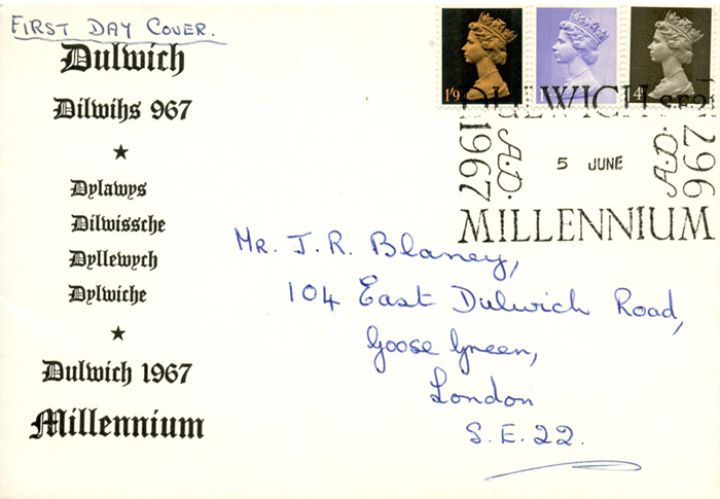 FIRST DAY COVER.
Dulwich
Dilwihs 967
★
Dylawys
Dilwissche
Dyllewych
Dylwiche
★
Dulwich 1967
Millennium
1/9
1
4
DULWICH S.E.21
1967
A.D.
5 JUNE
A.D.
967
MILLENNIUM
Mr. J. R. Blaney,
104 East Dulwich Road,
Goose Green,
London
S.E.22.